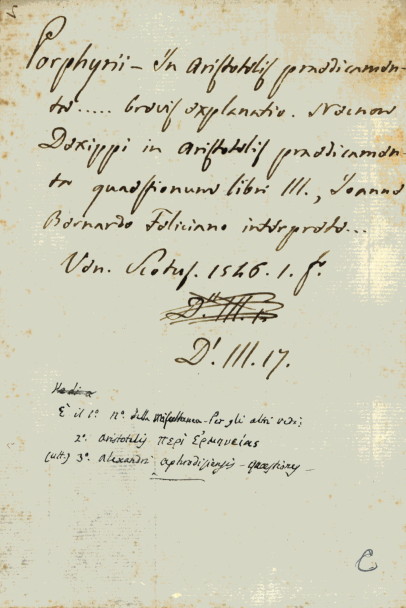 Porphyrii – In Aristotelis prædicamen-
ta ..... brevis explanatio. Necnon
Dexippi in Aristotelis prædicamen-
ta quæstionum libri III., Joanne
Bernardo Feliciano interprete...
Ven. Scotus. 1546. 1. f.
D! III. 17.
È il 1º nº della miscellanea – Per gli altri vedi:
2º Aristotelis περὶ Ἑρμηνείας
(ult.) 3º Alexandri Aphrodisiensis – Quæstiones –
C